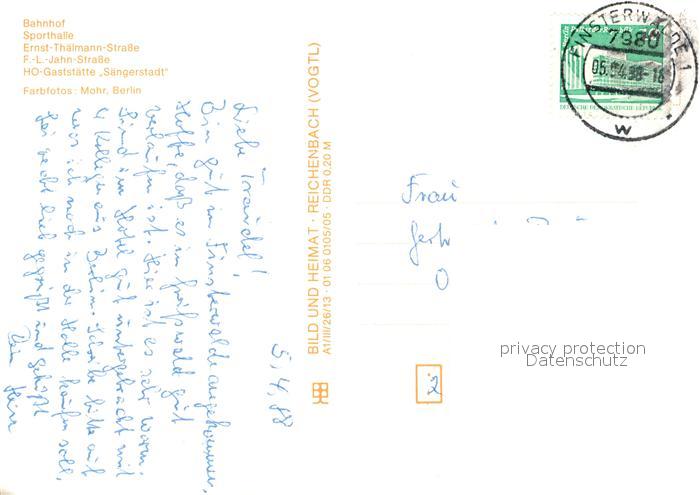 Bahnhof
Sporthalle
Ernst-Thälmann-Straße
F.-L.-Jahn-Straße
HO-Gaststätte „Sängerstadt"
Farbfotos: Mohr, Berlin
5.4.88
Liebe Traudel!
Bin gut in Finsterwalde angekommen.
Hoffe, daß es in Greifswald gut
verlaufen ist. Hier ist es sehr warm.
Sind im Hotel gut untergebracht mit
4 Kollegen aus Berlin. Schreibe bitte mit
was ich noch in der Halle kaufen soll.
Sei recht lieb gegrüßt und geküßt
Dein
BILD UND HEIMAT · REICHENBACH (VOGTL)
A1/III/26/13 · 01 06 0105/05 · DDR 0,20 M
FINSTERWALDE 1
7980
05.04.88-18
W
DEUTSCHE DEMOKRATISCHE REPUBLIK
Frau
Gerh
O
2
privacy protection
Datenschutz